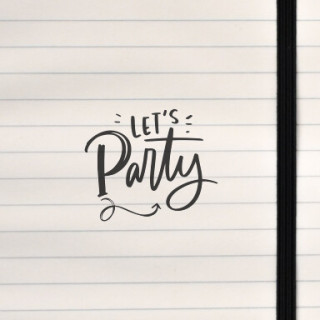 LET'S
Party